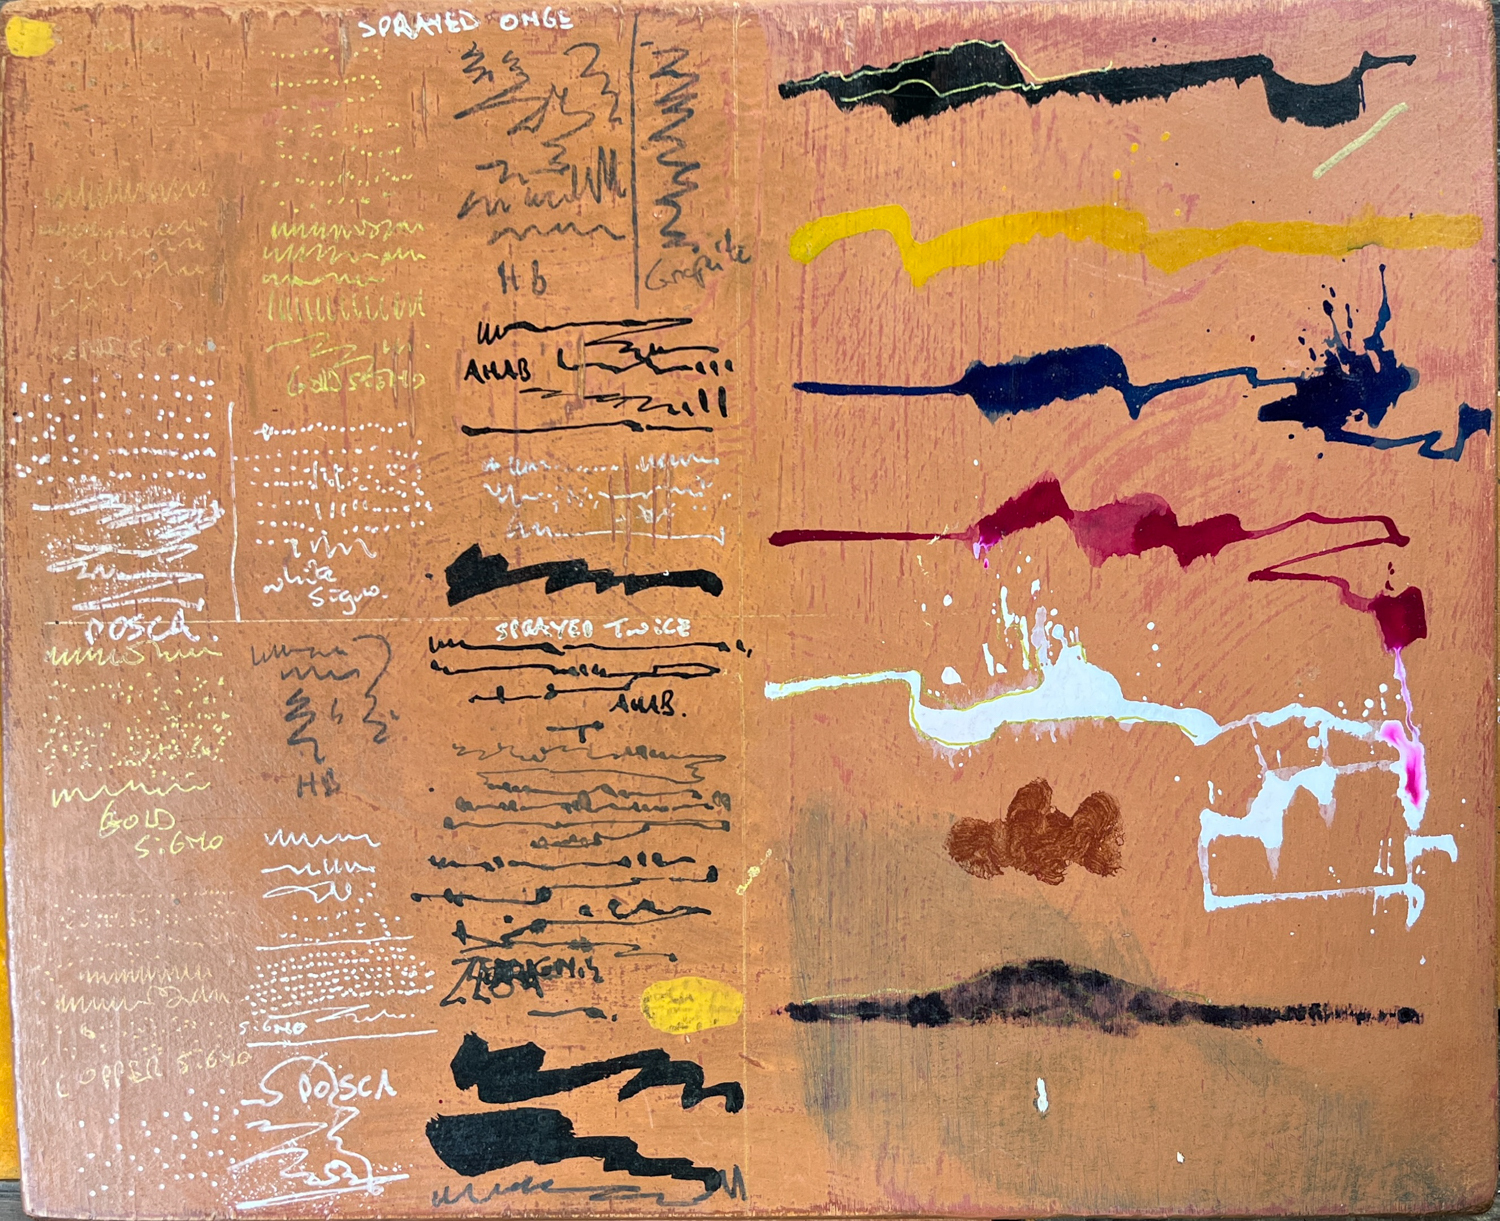 SPRAYED ONCE
HB
Graphite
GOLD SIGNO
AHAB
white
Signo.
POSCA.
SPRAYED TWICE
AHAB.
HB
GOLD
SIGNO
SIGNO
COPPER SIGNO
POSCA